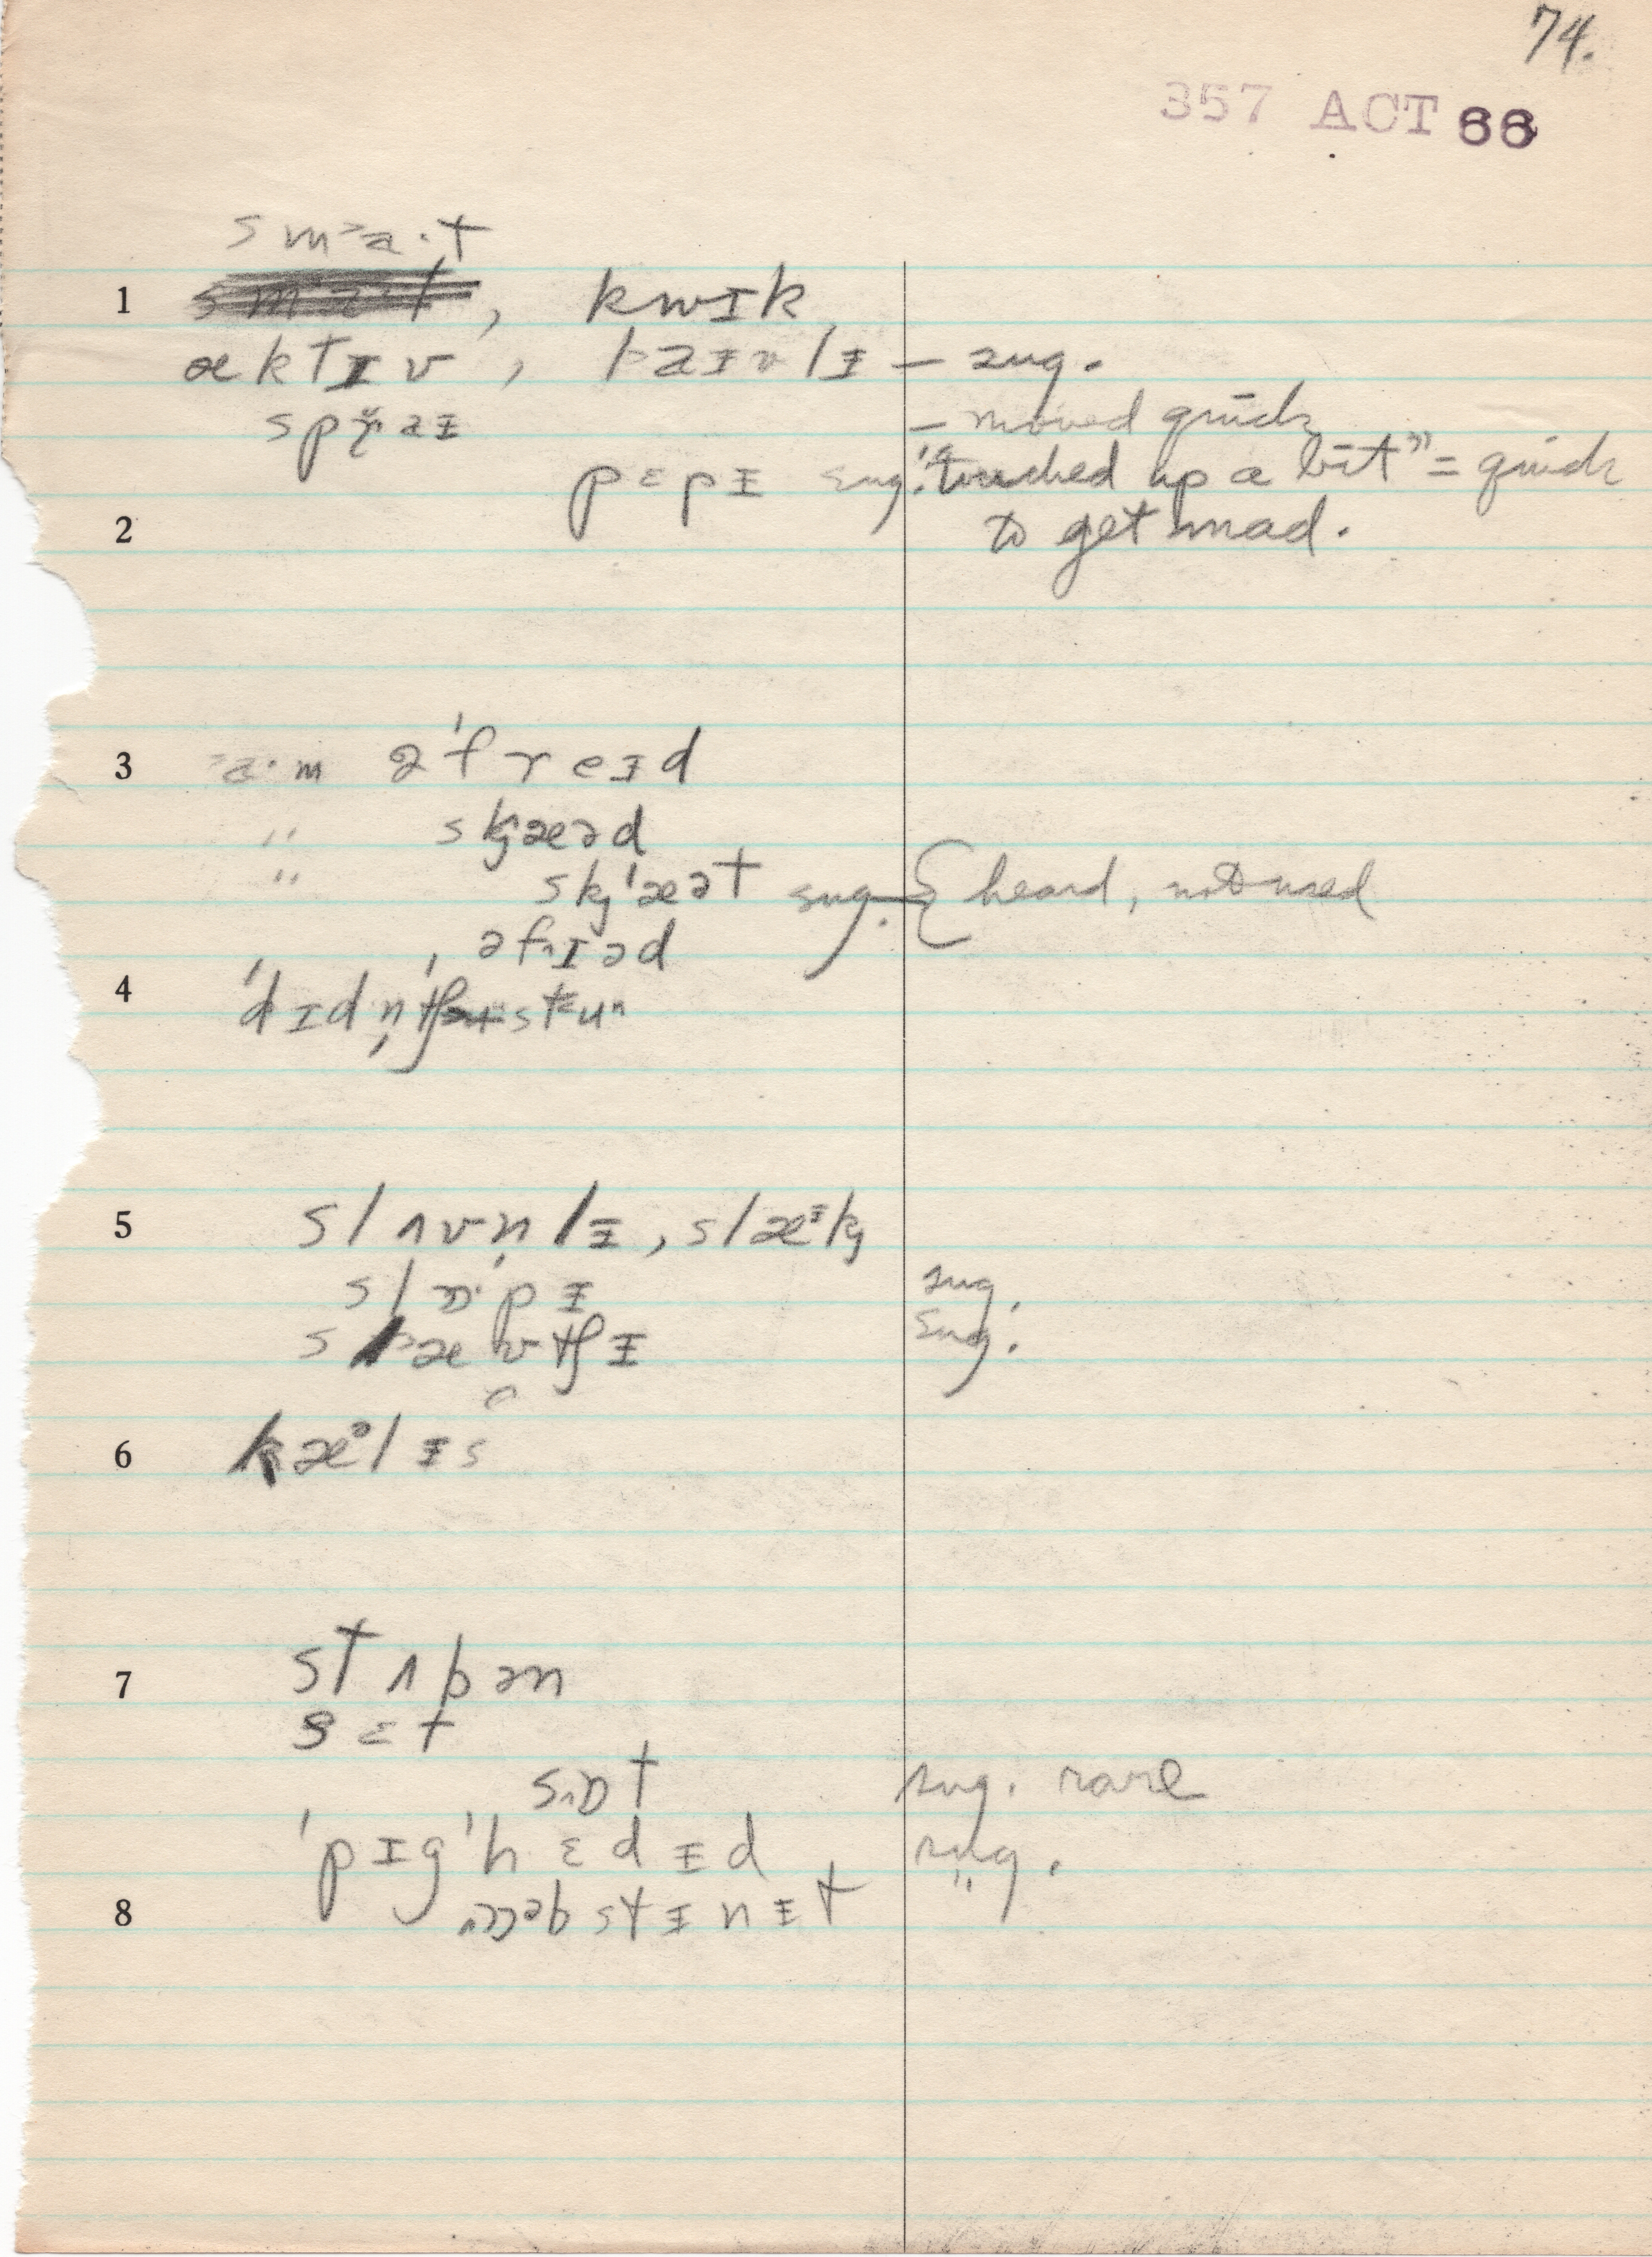 74.
357 ACT 66
sm˃a·t
1 , kwɪk
æktɪv , laɪvlɪ – sug.
spraɪ – moved quick
pɛpɪ sug. "touched up a bit" = quick
2 to get mad.
3 a·m əˈfreɪd
" skæəd
" skˈæət sug. { heard, not used
əfɪəd
4 ˈdɪdn̩
5 slʌvn̩lɪ, slæᶦk
slɒ·pɪ sug.
sug.
6 kæᵊlɪs
7 stʌbən
sɛt
sɒt sug. rare
ˈpɪgˈhɛdɪd sug.
8 ɒbstɪnɪt "